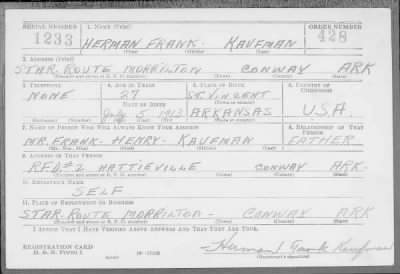 SERIAL NUMBER 1. NAME (Print) ORDER NUMBER
1233 HERMAN FRANK - KAUFMAN 428
(First) (Middle) (Last)
2. ADDRESS (Print)
STAR. ROUTE MORRILTON CONWAY ARK
(Number and street or R. F. D. number) (Town) (County) (State)
3. TELEPHONE 4. AGE IN YEARS 5. PLACE OF BIRTH 6. COUNTRY OF CITIZENSHIP
NONE 27 ST. VINCENT
DATE OF BIRTH (Town or county)
July 5 1913 ARKANSAS U.S.A.
(Exchange) (Number) (Mo.) (Day) (Yr.) (State or country)
7. NAME OF PERSON WHO WILL ALWAYS KNOW YOUR ADDRESS 8. RELATIONSHIP OF THAT PERSON
MR. FRANK - HENRY - KAUFMAN FATHER
(Mr., Mrs., Miss) (First) (Middle) (Last)
9. ADDRESS OF THAT PERSON
RFD #2 HATTIEVILLE CONWAY ARK.
(Number and street or R. F. D. number) (Town) (County) (State)
10. EMPLOYER'S NAME
SELF
11. PLACE OF EMPLOYMENT OR BUSINESS
STAR. ROUTE MORRILTON - CONWAY ARK
(Number and street or R. F. D. number) (Town) (County) (State)
I AFFIRM THAT I HAVE VERIFIED ABOVE ANSWERS AND THAT THEY ARE TRUE.
REGISTRATION CARD
D. S. S. Form 1 16-17105 Herman Frank Kaufman
(over) (Registrant's signature)